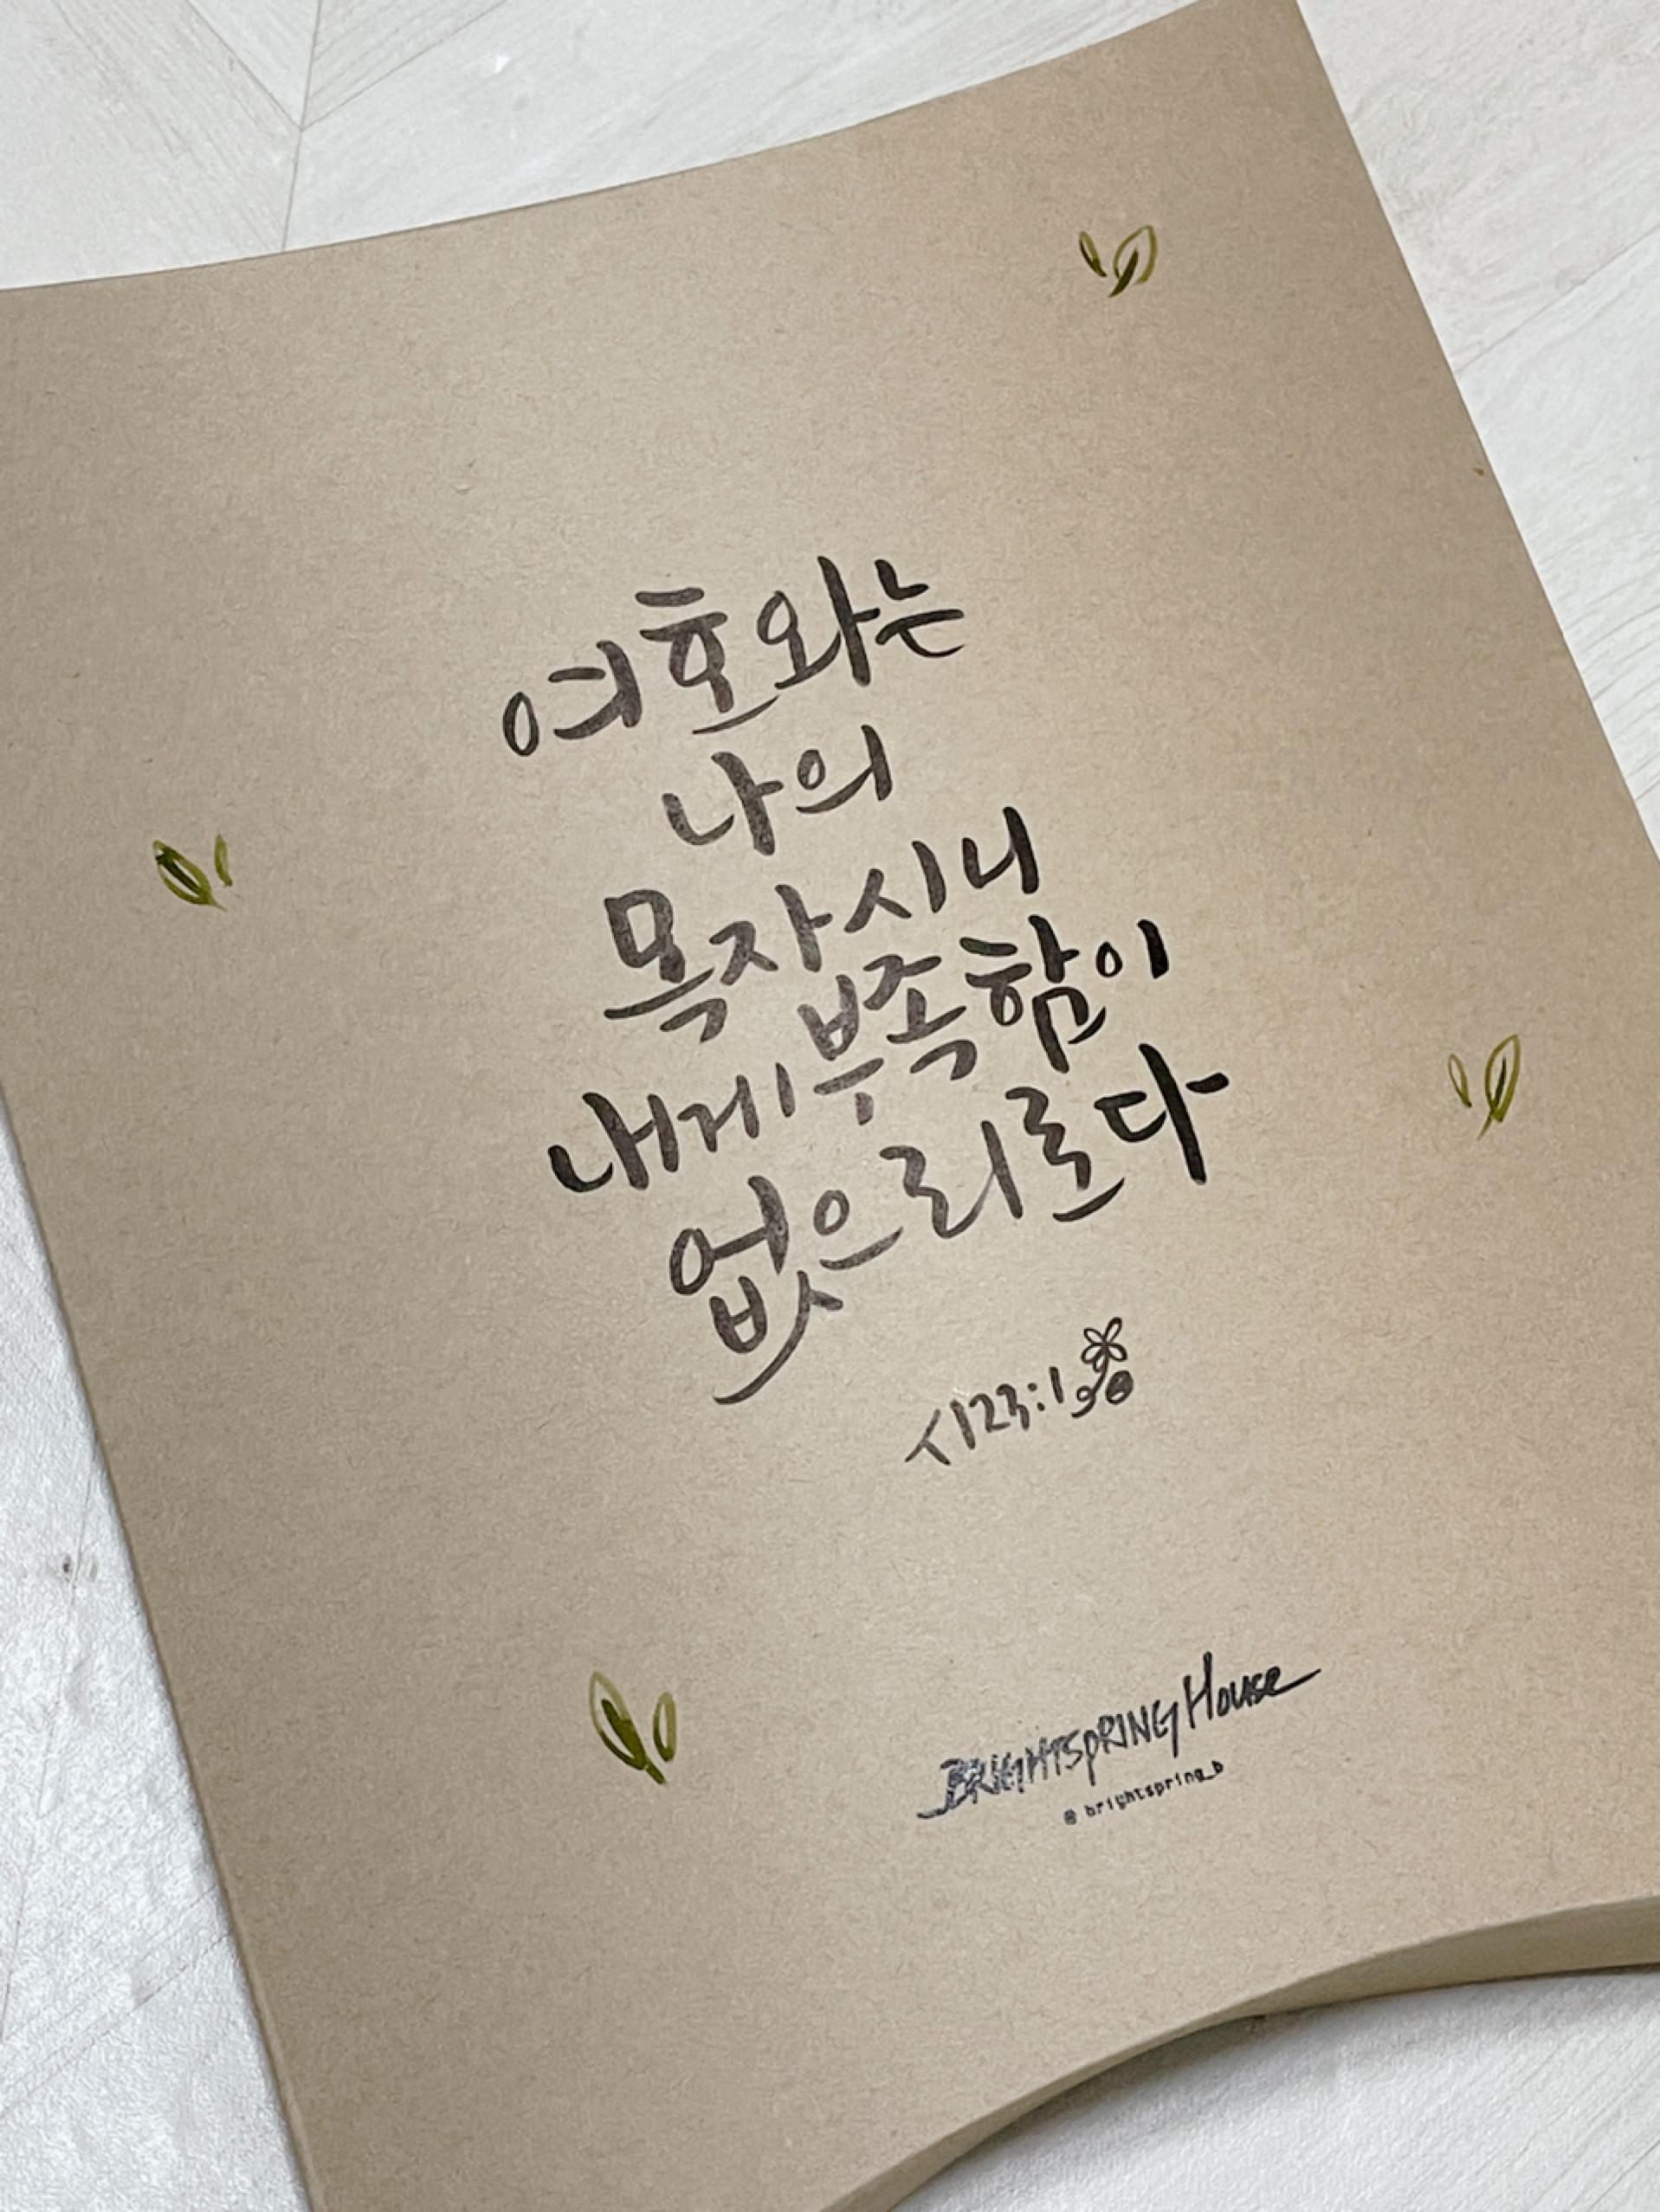 여호와는
나의
목자시니
내게 부족함이
없으리로다
시 23:1
BRIGHTSPRING HOUSE
@ brightspring_b